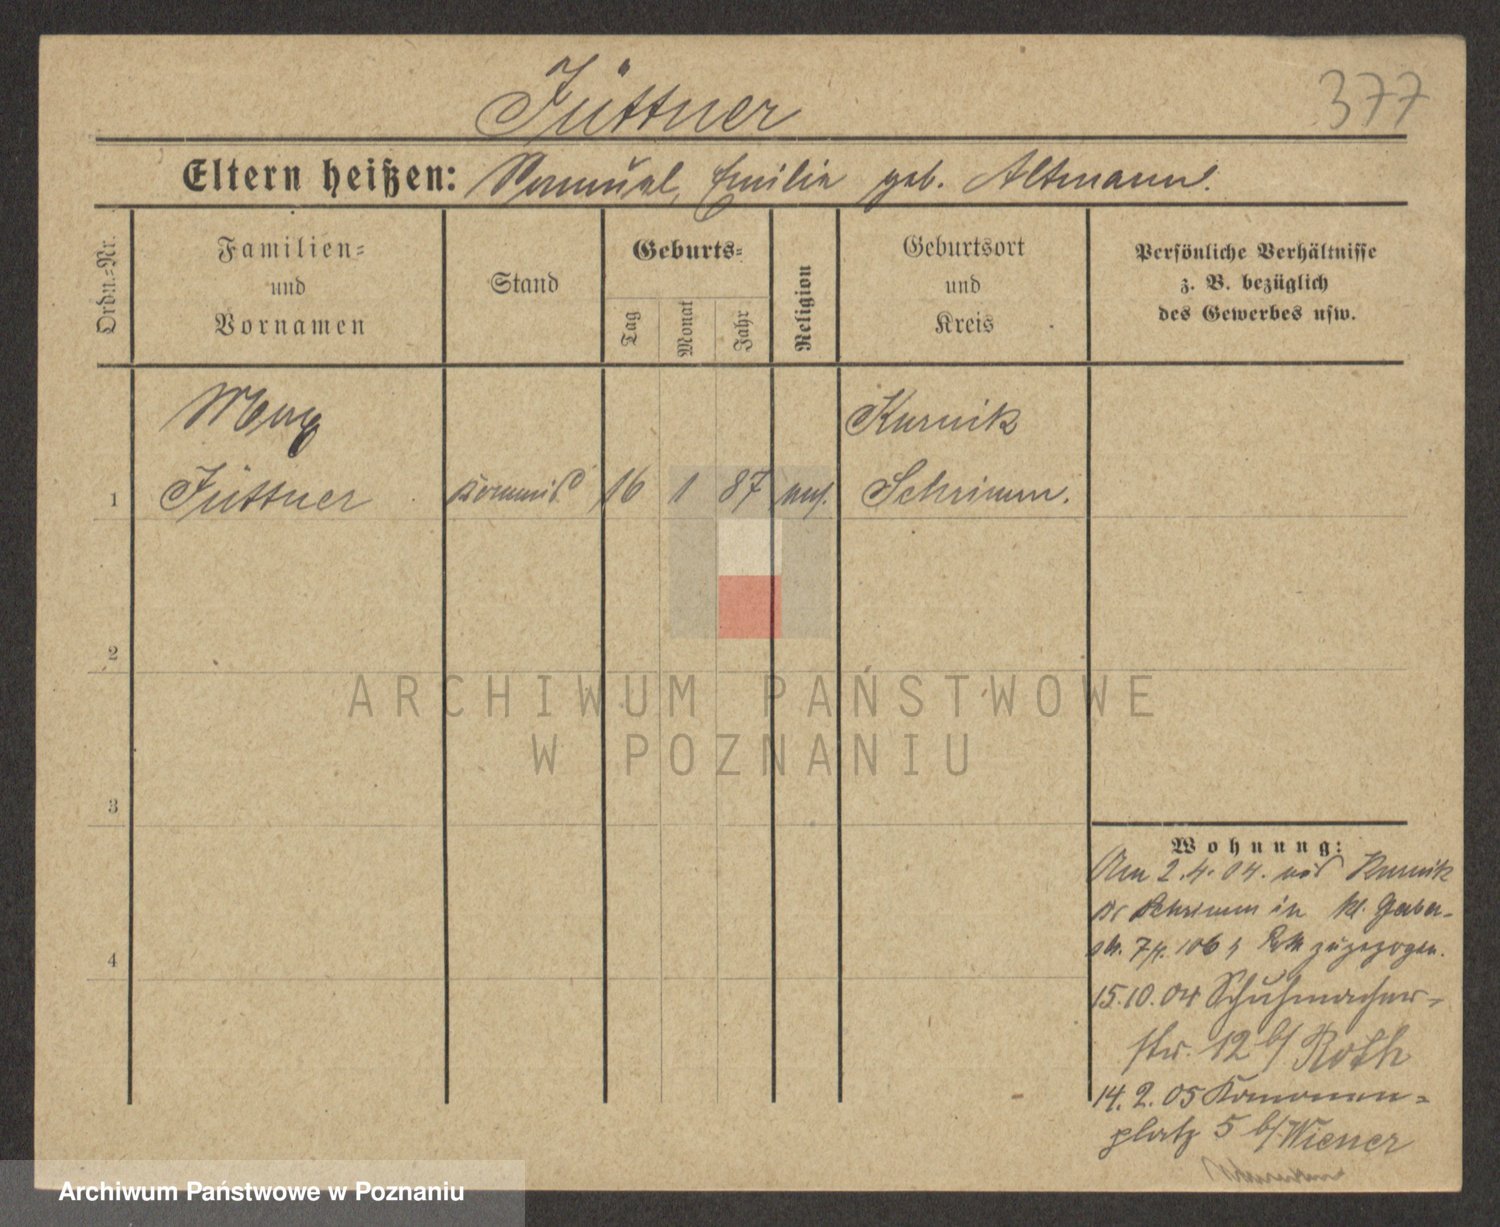 Jüttner
377
Eltern heißen: Samuel, Emilie geb. Altmann.
Ordn.-Nr.
Familien- und Vornamen
Stand
Geburts-
Tag
Monat
Jahr
Religion
Geburtsort und Kreis
Persönliche Verhältnisse
z. B. bezüglich
des Gewerbes usw.
Max
Kurnik
1 Jüttner Kommis 16 1 87 mos. Schrimm.
2
3
4
Wohnung:
Am 2.4.04. aus Kurnik
Kr Schrimm in kl. Gerber-
str. 7 zugezogen.
15.10.04 Schuhmacher-
str. 12 b/ Roth
14.2.05 Kanonen-
platz 5 b/ Wiener
ARCHIWUM PAŃSTWOWE
W POZNANIU
Archiwum Państwowe w Poznaniu